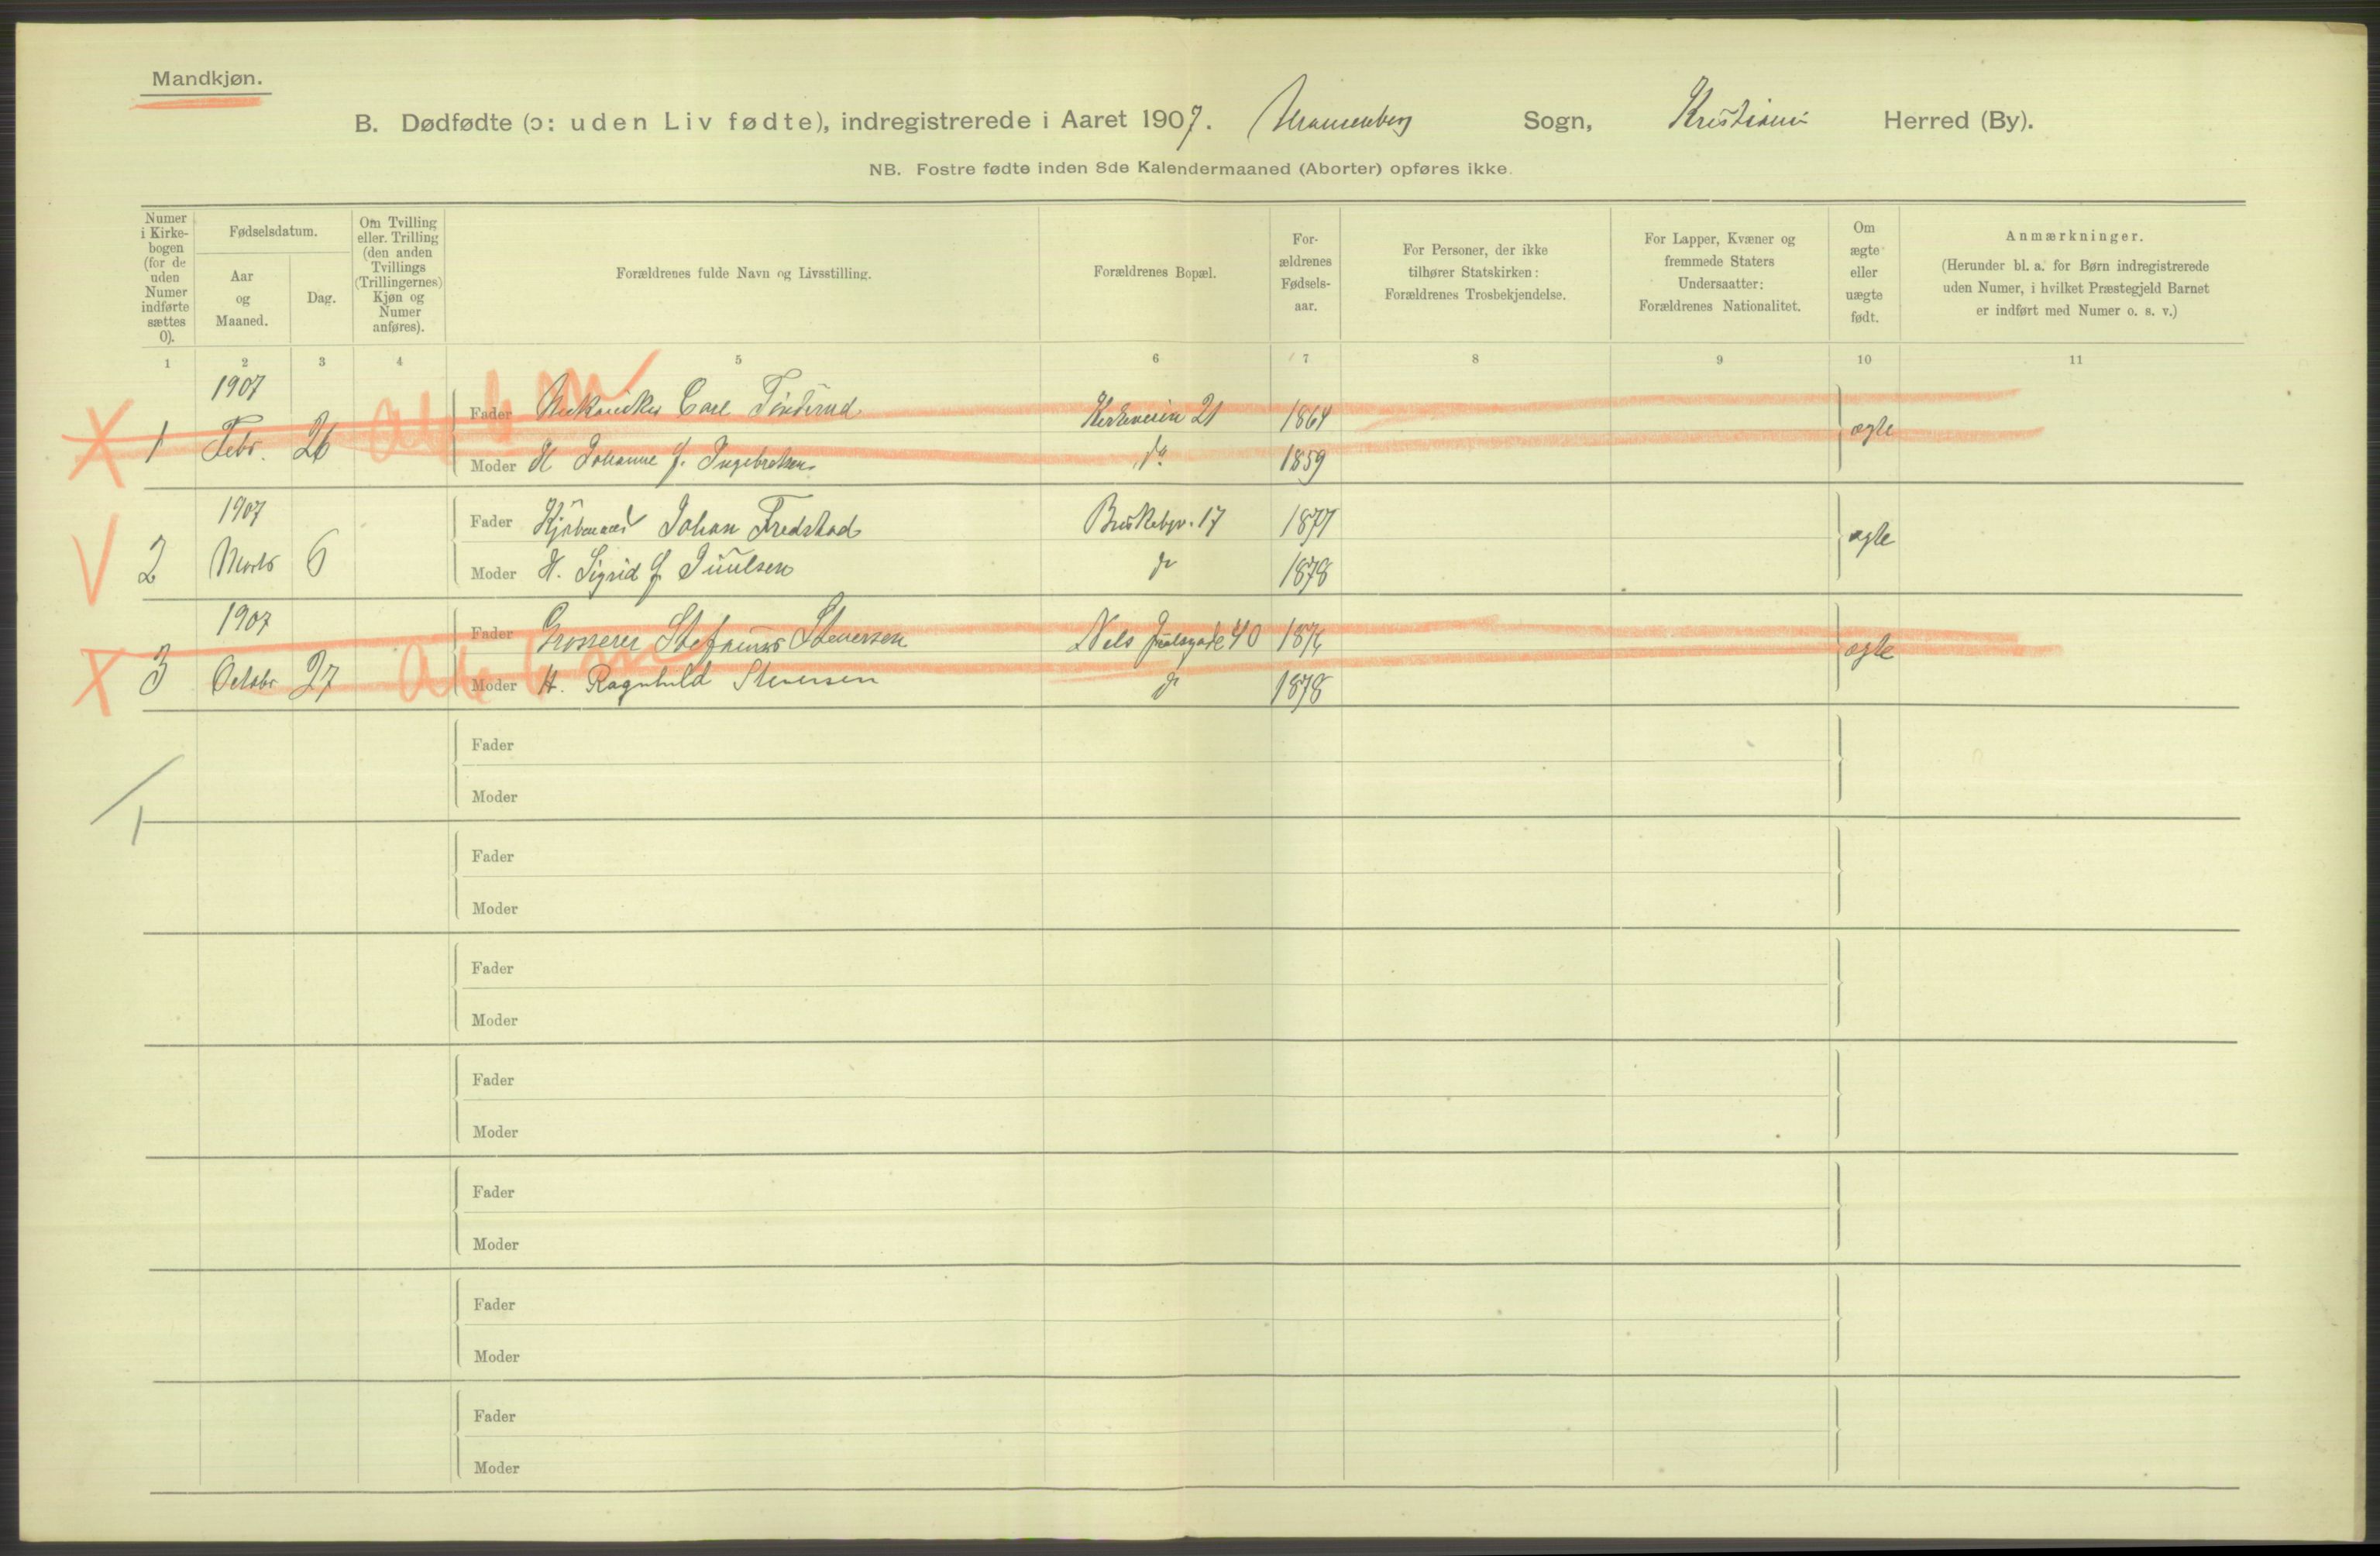 Mandkjøn.
B. Dødfødte (ɔ: uden Liv fødte), indregistrerede i Aaret 1907. Uranienborg Sogn, Kristiania Herred (By).
NB. Fostre fødte inden 8de Kalendermaaned (Aborter) opføres ikke.
Numer i Kirke-bogen (for de uden Numer indførte sættes 0).
Fødselsdatum.
Aar og Maaned.
Dag.
Om Tvilling eller Trilling (den anden Tvillings (Trillingernes) Kjøn og Numer anføres).
Forældrenes fulde Navn og Livsstilling.
Forældrenes Bopæl.
For-ældrenes Fødsels-aar.
For Personer, der ikke tilhører Statskirken: Forældrenes Trosbekjendelse.
For Lapper, Kvæner og fremmede Staters Undersaatter: Forældrenes Nationalitet.
Om ægte eller uægte født.
Anmærkninger.
(Herunder bl. a. for Børn indregistrerede uden Numer, i hvilket Præstegjeld Barnet er indført med Numer o. s. v.)
1 2 3 4 5 6 7 8 9 10 11
1907
Fader Carl Kirkeveien 21 1864
1 Febr. 26 ægte
Moder H Johanne f. Ingebretsen do 1859
1907
Fader Kjøbmand Johan Fredstad 17 1877
2 Marts 6 ægte
Moder H. Sigrid f. Juulsen do 1878
1907
Fader Grosserer Stefanus Stenersen Nels Juelsgade 40 187
3 Octobr 27 ægte
Moder H. Ragnhild Stenersen do 1878
Fader
Moder
Fader
Moder
Fader
Moder
Fader
Moder
Fader
Moder
Fader
Moder
Fader
Moder